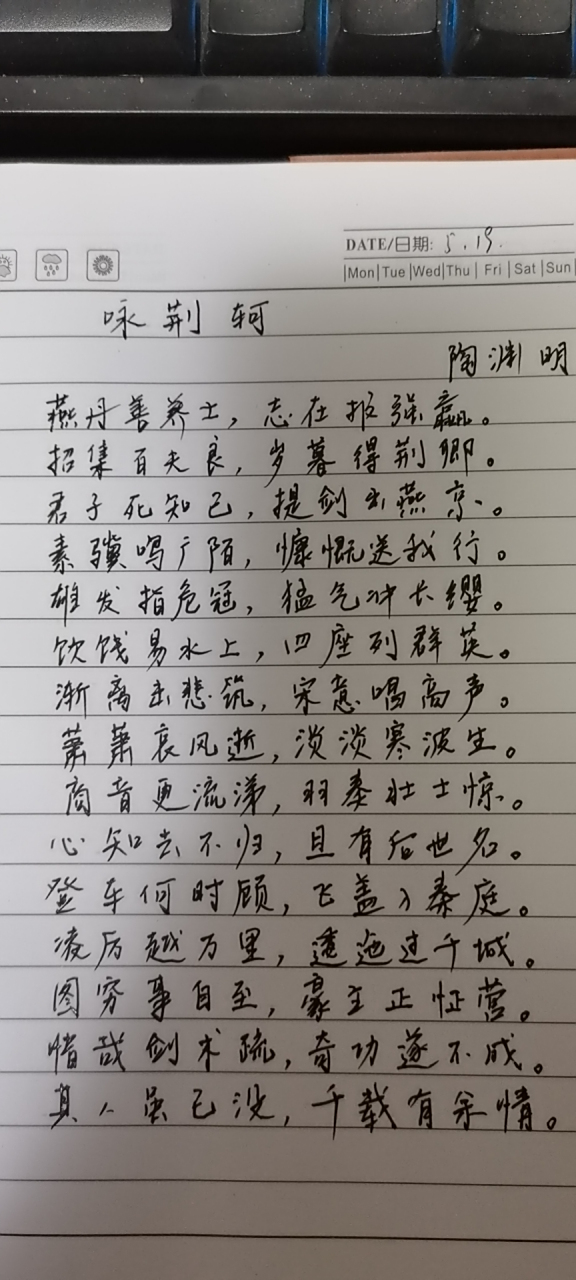 DATE/日期: 5.19.
Mon Tue Wed Thu Fri Sat Sun
咏荆轲
陶渊明
燕丹善养士，志在报强嬴。
招集百夫良，岁暮得荆卿。
君子死知己，提剑出燕京。
素骥鸣广陌，慷慨送我行。
雄发指危冠，猛气冲长缨。
饮饯易水上，四座列群英。
渐离击悲筑，宋意唱高声。
萧萧哀风逝，淡淡寒波生。
商音更流涕，羽奏壮士惊。
心知去不归，且有后世名。
登车何时顾，飞盖入秦庭。
凌厉越万里，逶迤过千城。
图穷事自至，豪主正怔营。
惜哉剑术疏，奇功遂不成。
其人虽已没，千载有余情。